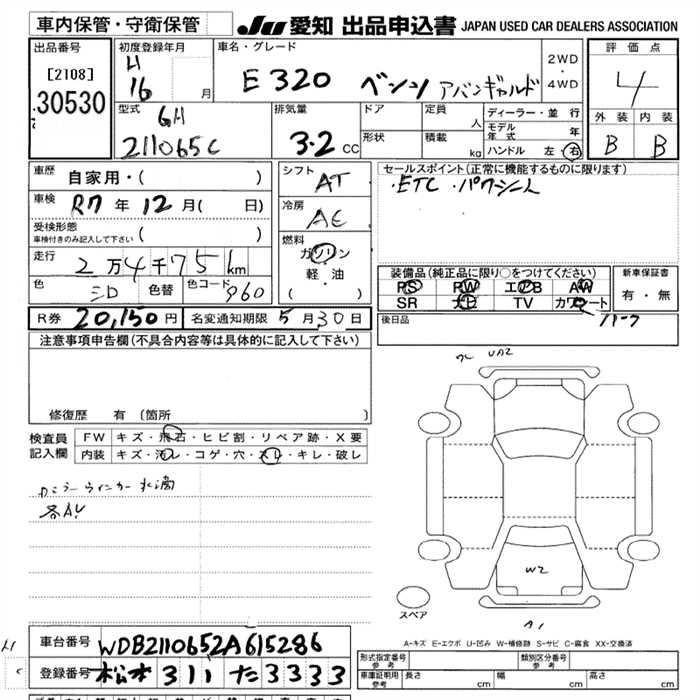 車内保管・守衛保管
JU 愛知 出品申込書 JAPAN USED CAR DEALERS ASSOCIATION
出品番号
[2108]
30530
初度登録年月
H
16 月
車名・グレード
E320 ベンツ アバンギャルド
2WD
・
4WD
評価点
4
外装 内装
B B
型式
GH
211065C
排気量
3.2 cc
ドア
形状
定員
人
積載
kg
ディーラー・並行
モデル年式 年
ハンドル 左・右
車歴
自家用・( )
車検
R7 年 12 月( 日)
受検形態
車検付きのみ記入して下さい ( )
走行
2万4千75 km
色 色替 色コード
960
シフト
AT
冷房
AC
燃料
ガソリン
軽・油
( )
セールスポイント(正常に機能するものに限ります)
・ETC ・パワーシート
装備品(純正品に限り○をつけてください)
PS PW エアB AW
SR 本土 TV カワシート
新車保証書
有・無
R券 20,150円 名変通知期限 5月30日
後日品
注意事項申告欄(不具合内容等は具体的に記入して下さい)
修復歴 有 (箇所 )
検査員
記入欄
FW キズ・飛石・ヒビ割・リペア跡・X要
内装 キズ・汚レ・コゲ・穴・スレ・キレ・破レ
各AU
UA2
W2
A1
スペア
A-キズ E-エクボ U-凹み W-補修跡 S-サビ C-腐食 XX-交換済
車台番号 WDB2110652A615286
登録番号 松本 311 た 3333
形式指定番号
参考
類別区分番号
参考
車庫証明用
参考
長さ cm 幅 cm 高さ cm